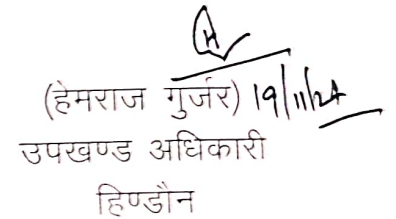 (हेमराज गुर्जर) 19/11/24
उपखण्ड अधिकारी
हिण्डौन